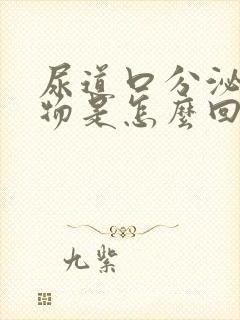 尿道口分泌
物是怎麼回
九紫